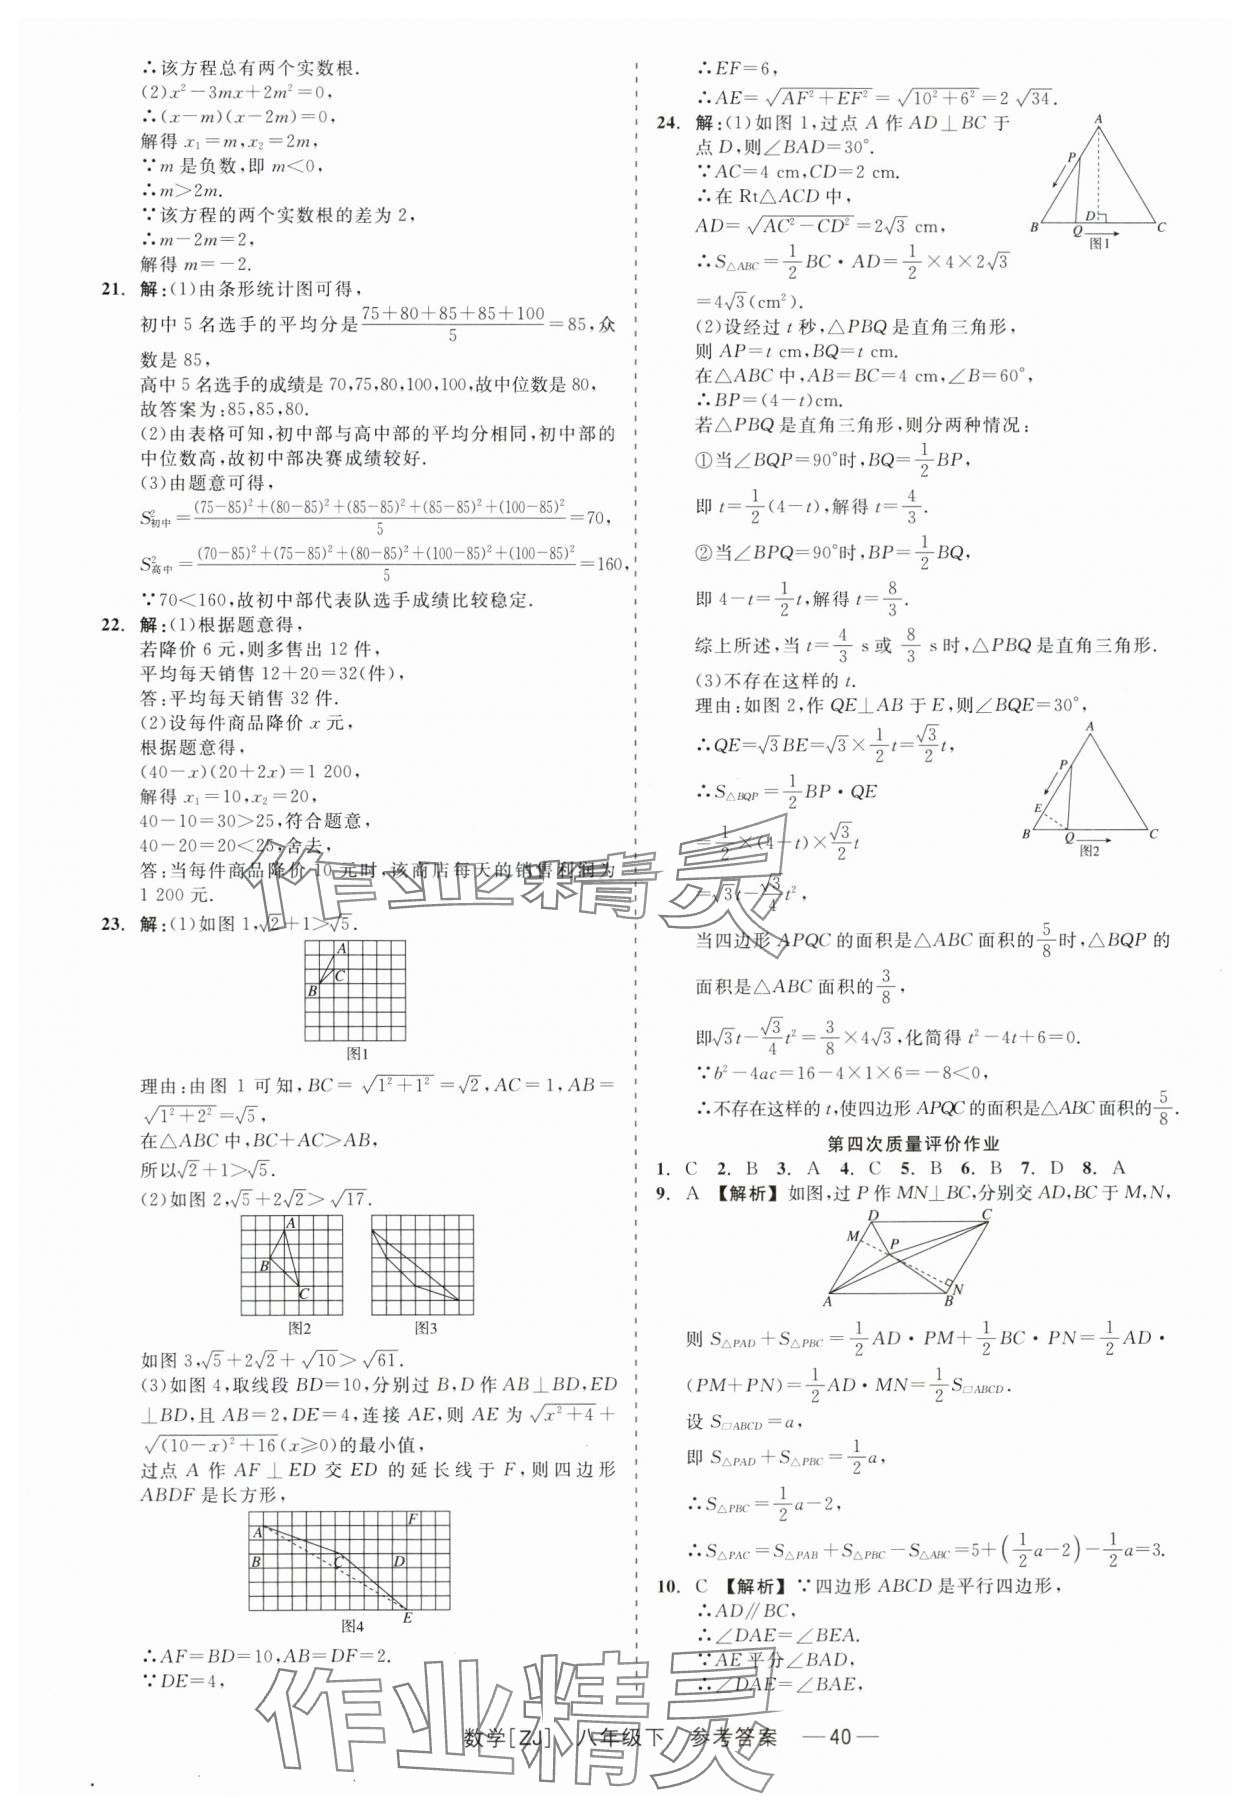 ∴该方程总有两个实数根.
(2)x²-3mx+2m²=0,
∴(x-m)(x-2m)=0,
解得 x₁=m,x₂=2m,
∵m 是负数,即 m<0,
∴m>2m.
∵该方程的两个实数根的差为 2,
∴m-2m=2,
解得 m=-2.
21. 解:(1)由条形统计图可得,
初中 5 名选手的平均分是(75+80+85+85+100)/5=85,众
数是 85,
高中 5 名选手的成绩是 70,75,80,100,100,故中位数是 80,
故答案为:85,85,80.
(2)由表格可知,初中部与高中部的平均分相同,初中部的
中位数高,故初中部决赛成绩较好.
(3)由题意可得,
S²初中=((75-85)²+(80-85)²+(85-85)²+(85-85)²+(100-85)²)/5=70,
S²高中=((70-85)²+(75-85)²+(80-85)²+(100-85)²+(100-85)²)/5=160,
∵70<160,故初中部代表队选手成绩比较稳定.
22. 解:(1)根据题意得,
若降价 6 元,则多售出 12 件,
平均每天销售 12+20=32(件),
答:平均每天销售 32 件.
(2)设每件商品降价 x 元,
根据题意得,
(40-x)(20+2x)=1 200,
解得 x₁=10,x₂=20,
40-10=30>25,符合题意,
40-20=20<25,舍去,
答:当每件商品降价 10 元时,该商店每天的销售利润为
1 200 元.
23. 解:(1)如图 1,√2+1>√5.
A
C
B
图1
理由:由图 1 可知,BC=√(1²+1²)=√2,AC=1,AB=
√(1²+2²)=√5,
在△ABC 中,BC+AC>AB,
所以√2+1>√5.
(2)如图 2,√5+2√2>√17.
A
B
C
图2 图3
如图 3,√5+2√2+√10>√61.
(3)如图 4,取线段 BD=10,分别过 B,D 作 AB⊥BD,ED
⊥BD,且 AB=2,DE=4,连接 AE,则 AE 为 √(x²+4)+
√((10-x)²+16)(x≥0)的最小值,
过点 A 作 AF⊥ED 交 ED 的延长线于 F,则四边形
ABDF 是长方形,
A F
B C D
E
图4
∴AF=BD=10,AB=DF=2.
∵DE=4,
∴EF=6,
∴AE=√(AF²+EF²)=√(10²+6²)=2√34.
24. 解:(1)如图 1,过点 A 作 AD⊥BC 于
点 D,则∠BAD=30°.
∵AC=4 cm,CD=2 cm.
∴在 Rt△ACD 中,
AD=√(AC²-CD²)=2√3 cm,
∴S△ABC=1/2 BC·AD=1/2×4×2√3
=4√3(cm²).
A
P
B Q D C
图1
(2)设经过 t 秒,△PBQ 是直角三角形,
则 AP=t cm,BQ=t cm.
在△ABC 中,AB=BC=4 cm,∠B=60°,
∴BP=(4-t)cm.
若△PBQ 是直角三角形,则分两种情况:
①当∠BQP=90°时,BQ=1/2 BP,
即 t=1/2(4-t),解得 t=4/3.
②当∠BPQ=90°时,BP=1/2 BQ,
即 4-t=1/2 t,解得 t=8/3.
综上所述,当 t=4/3 s或 8/3 s时,△PBQ 是直角三角形.
(3)不存在这样的 t.
理由:如图 2,作 QE⊥AB 于 E,则∠BQE=30°,
∴QE=√3BE=√3×1/2 t=√3/2 t,
∴S△BQP=1/2 BP·QE
=1/2×(4-t)×√3/2 t
=√3t-√3/4 t²,
A
P
E
B Q C
图2
当四边形 APQC 的面积是△ABC 面积的5/8时,△BQP 的
面积是△ABC 面积的3/8,
即√3t-√3/4 t²=3/8×4√3,化简得 t²-4t+6=0.
∵b²-4ac=16-4×1×6=-8<0,
∴不存在这样的 t,使四边形 APQC 的面积是△ABC 面积的5/8.
第四次质量评价作业
1. C 2. B 3. A 4. C 5. B 6. B 7. D 8. A
9. A 【解析】如图,过 P 作 MN⊥BC,分别交 AD,BC 于 M,N,
D C
M P
N
A B
则 S△PAD+S△PBC=1/2 AD·PM+1/2 BC·PN=1/2 AD·
(PM+PN)=1/2 AD·MN=1/2 S▱ABCD.
设 S▱ABCD=a,
即 S△PAD+S△PBC=1/2 a,
∴S△PBC=1/2 a-2,
∴S△PAC=S△PAB+S△PBC-S△ABC=5+(1/2 a-2)-1/2 a=3.
10. C 【解析】∵四边形 ABCD 是平行四边形,
∴AD∥BC,
∴∠DAE=∠BEA.
∵AE 平分∠BAD,
∴∠DAE=∠BAE,
作业精灵
作业精灵
数学[ZJ] 八年级下 参考答案 —40—